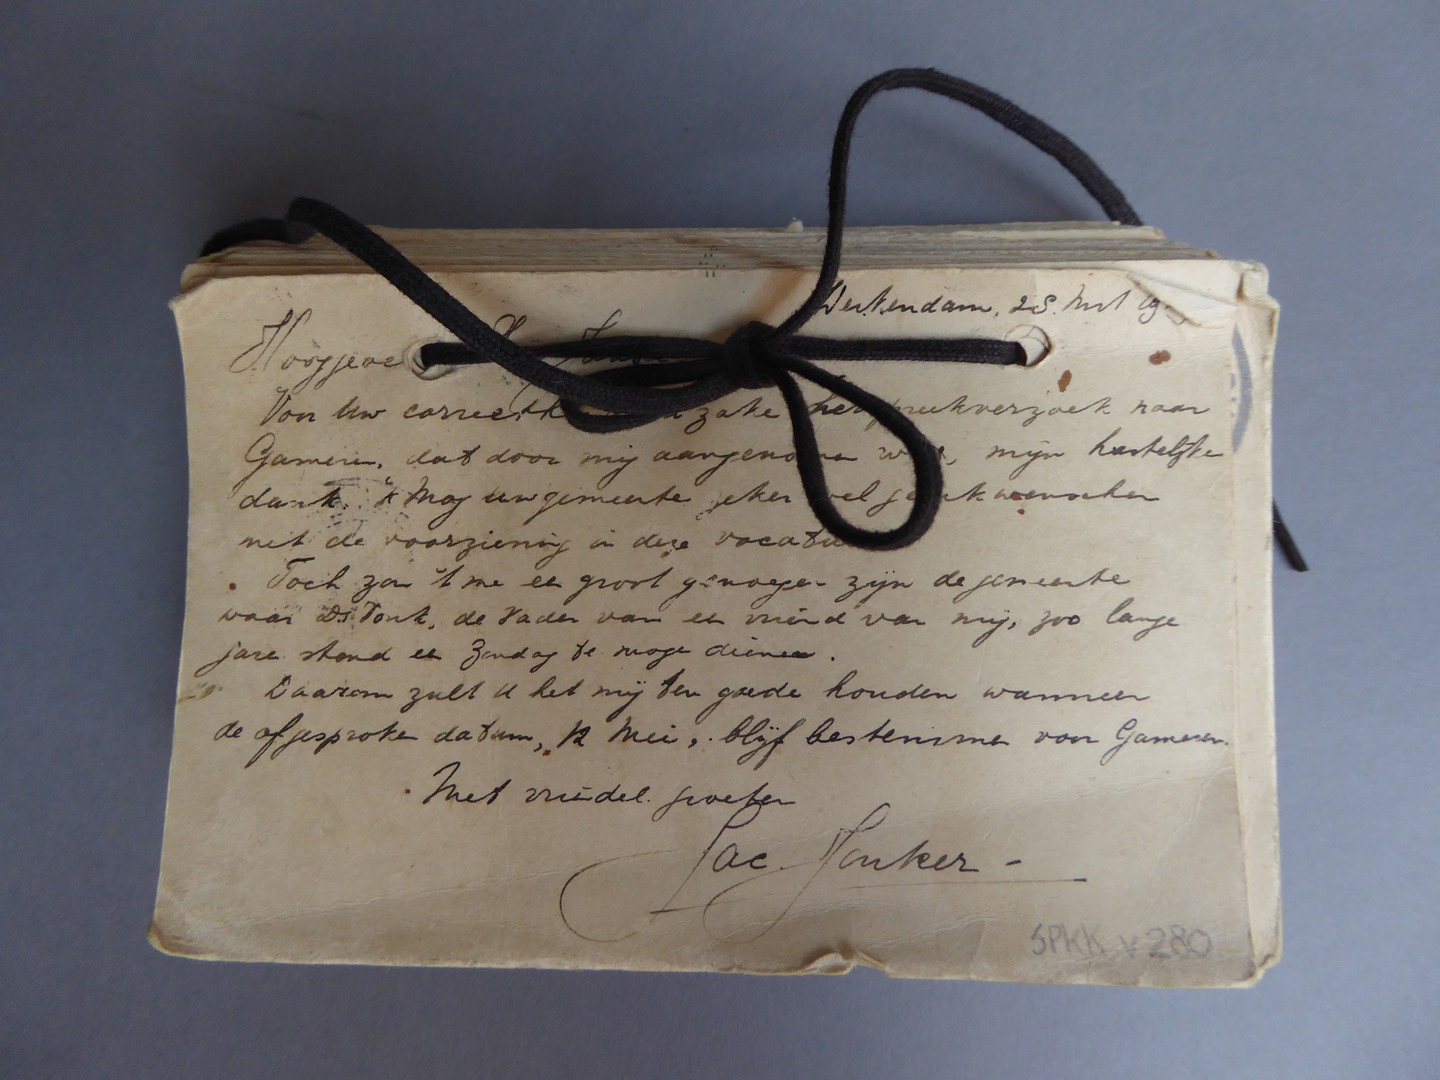 Werkendam, 25 Mrt 19
Hooggeac
Voor Uw correcthe zake het preekverzoek naar
Gameren, dat door mij aangenomen was, mijn hartelijke
dank. 'k Mag uw gemeente zeker wel gelukwenschen
met de voorziening in deze vacatu
Toch zou 't me een groot genoegen zijn de gemeente
waar Ds Tonk, de vader van een vriend van mij, zoo lange
jare stond een Zondag te moge dienen.
Daarom zult U het mij ten goede houden wanneer
de afgesproken datum, 12 Mei, blijf bestemmen voor Gameren.
Met vriendel. groeten
Jac. Jonker -
SPKK v 280